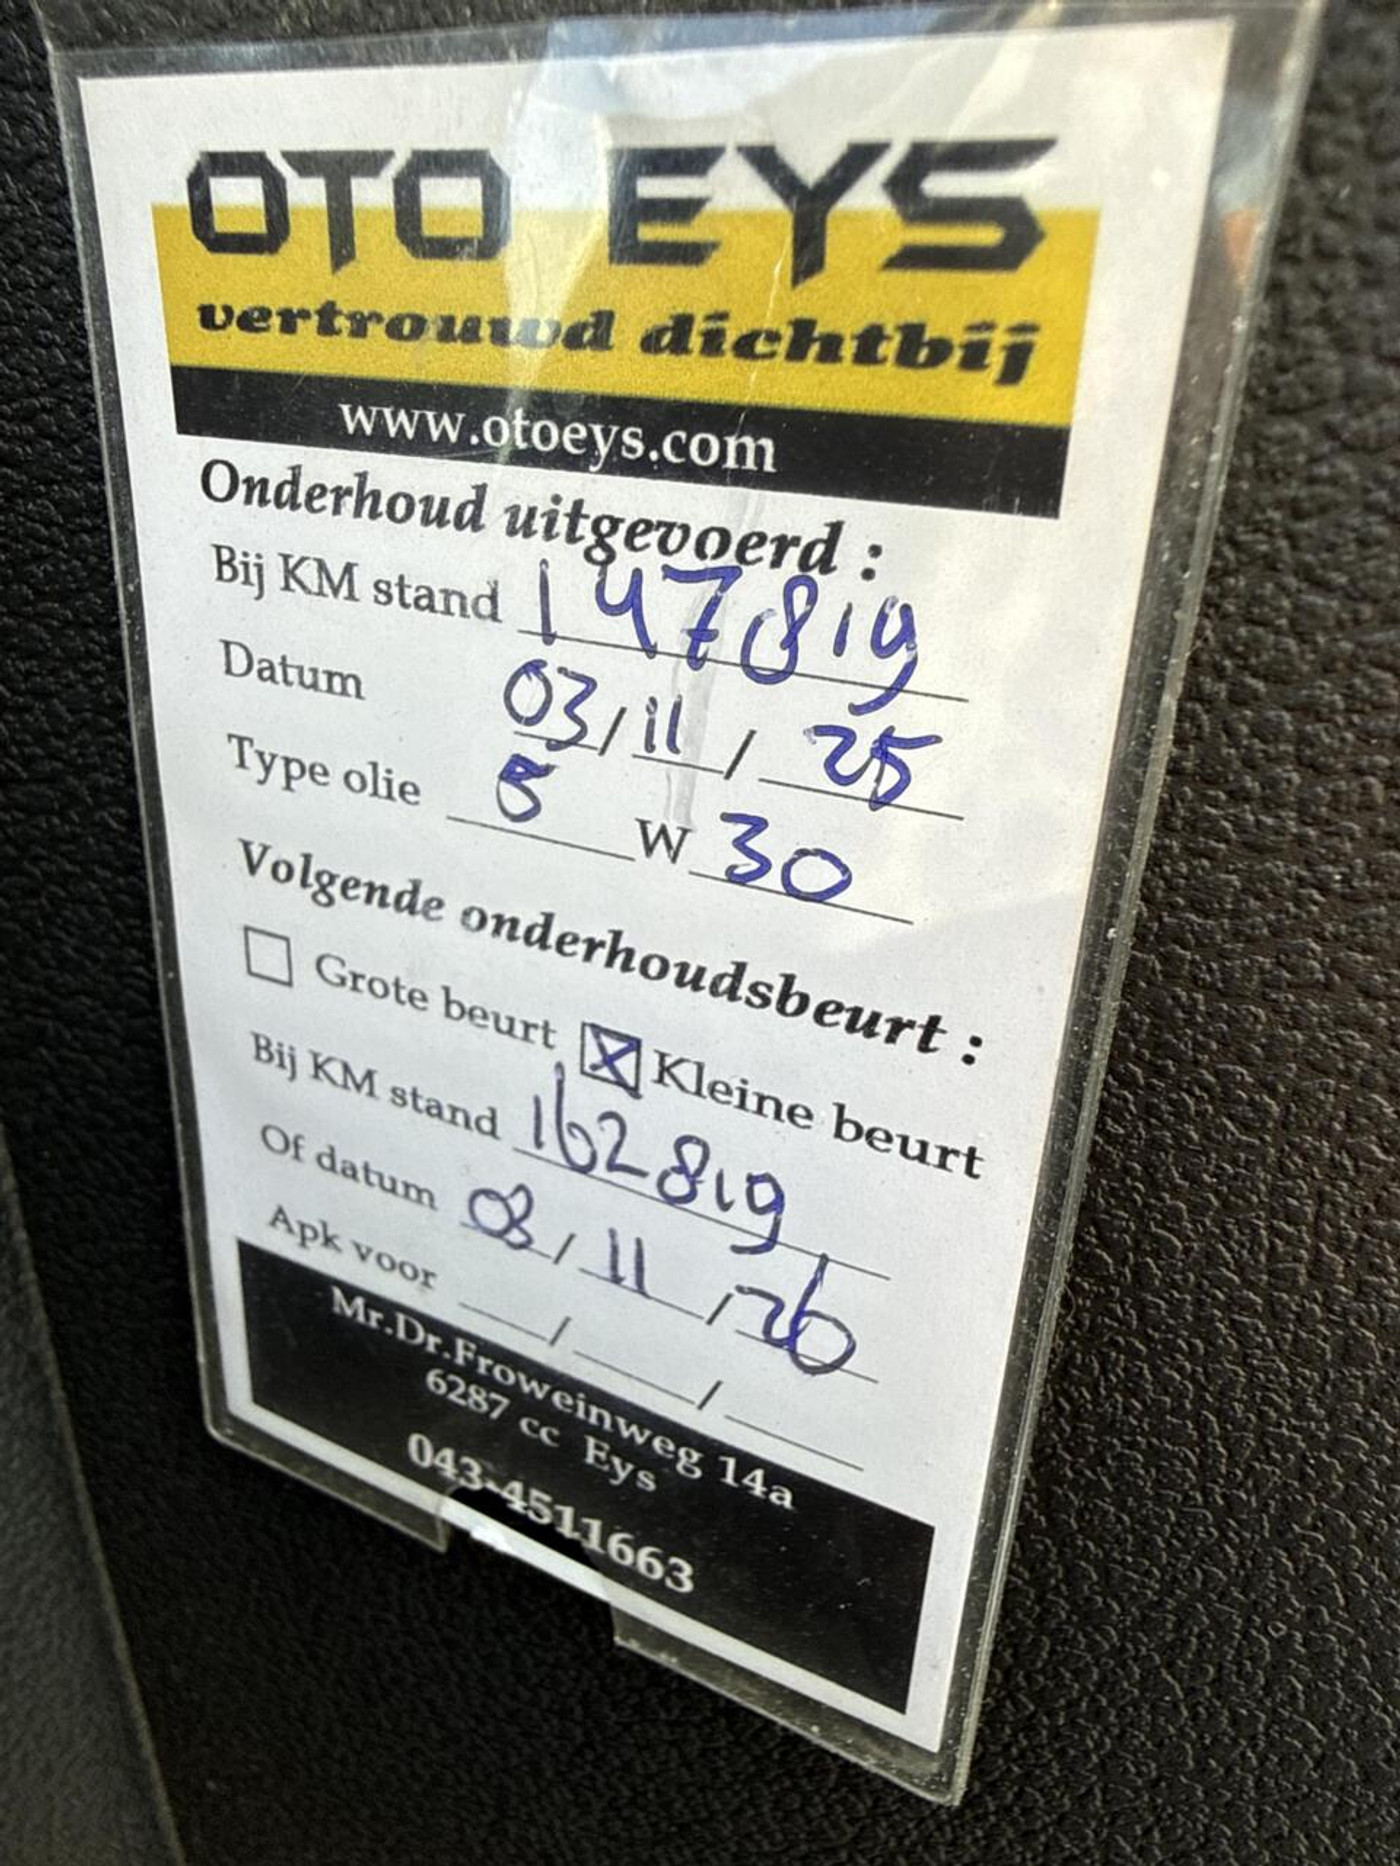 OTO EYS
vertrouwd dichtbij
www.otoeys.com
Onderhoud uitgevoerd :
Bij KM stand 147819
Datum 03/11/25
Type olie 5 W 30
Volgende onderhoudsbeurt :
Grote beurt Kleine beurt
Bij KM stand 162819
Of datum 03/11/26
Apk voor / /
Mr.Dr.Froweinweg 14a
6287 cc Eys
043-4511663